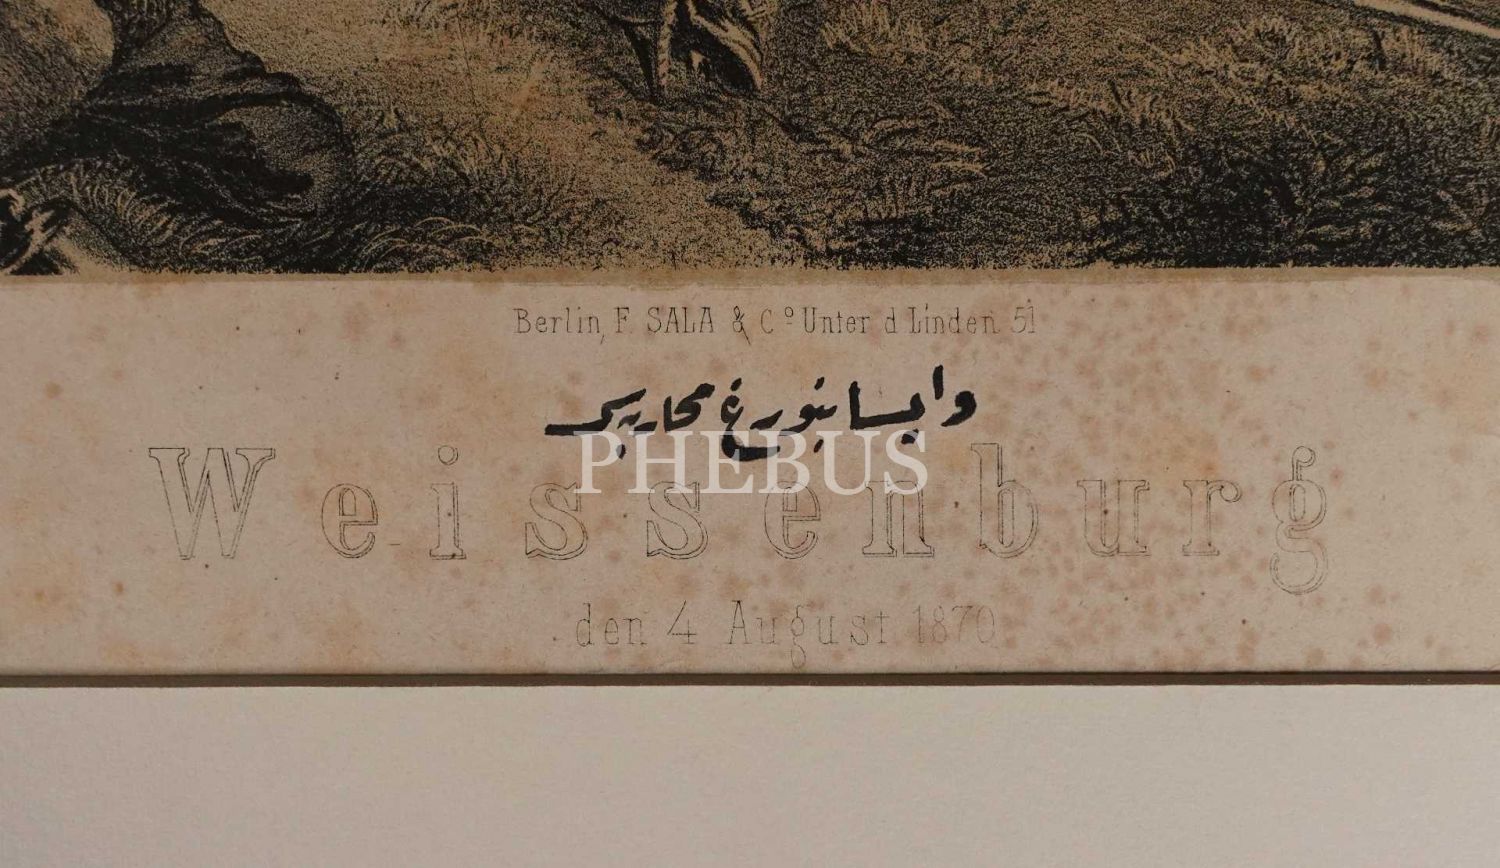 Berlin, F. SALA & Cº Unter d Linden 51
وایسا بنورغ محاربه‌سی
PHEBUS
Weissenburg
den 4 August 1870